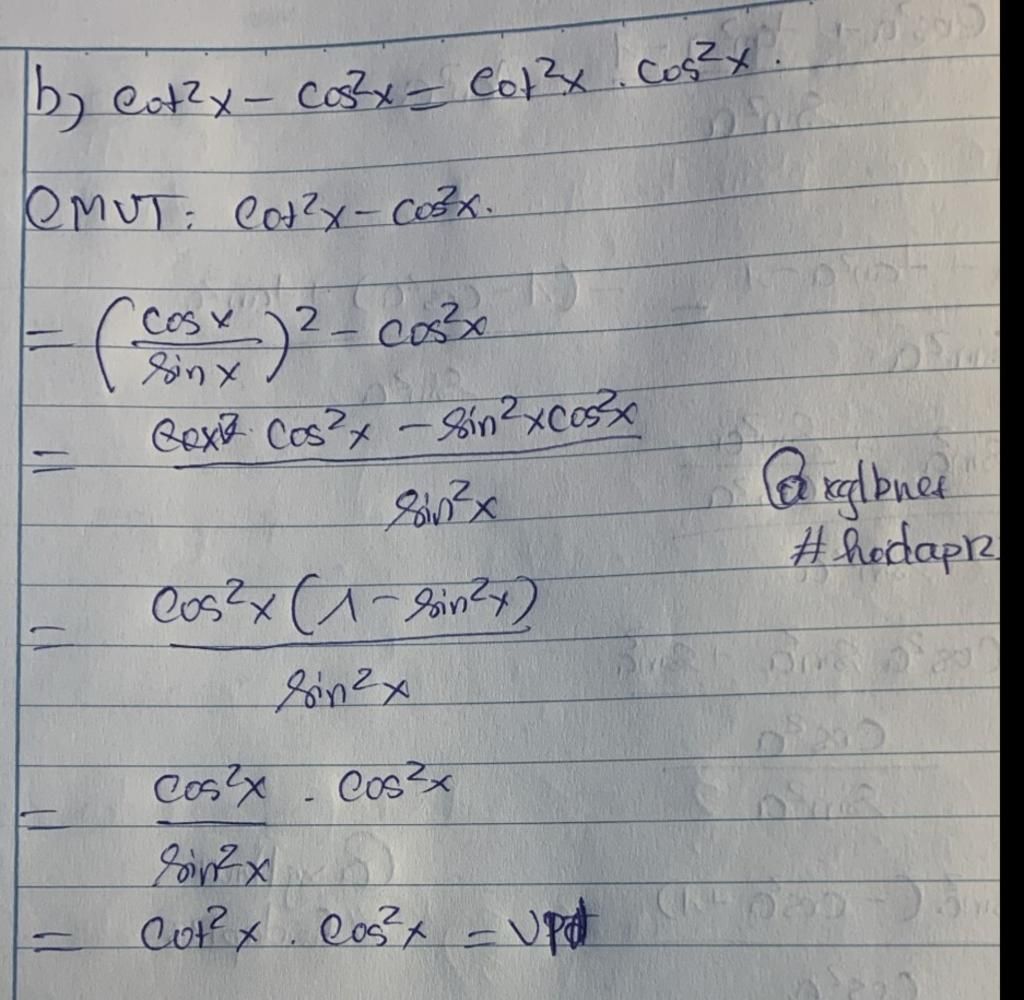 b) cot²x - cos²x = cot²x . cos²x.
CMVT: cot²x - cos²x.
= (cos x / sin x)² - cos²x
= cos²x - sin²x cos²x / sin²x
@xglbnet
#hodapr2
= cos²x (1 - sin²x) / sin²x
= cos²x / sin²x . cos²x
= cot²x . cos²x = VP